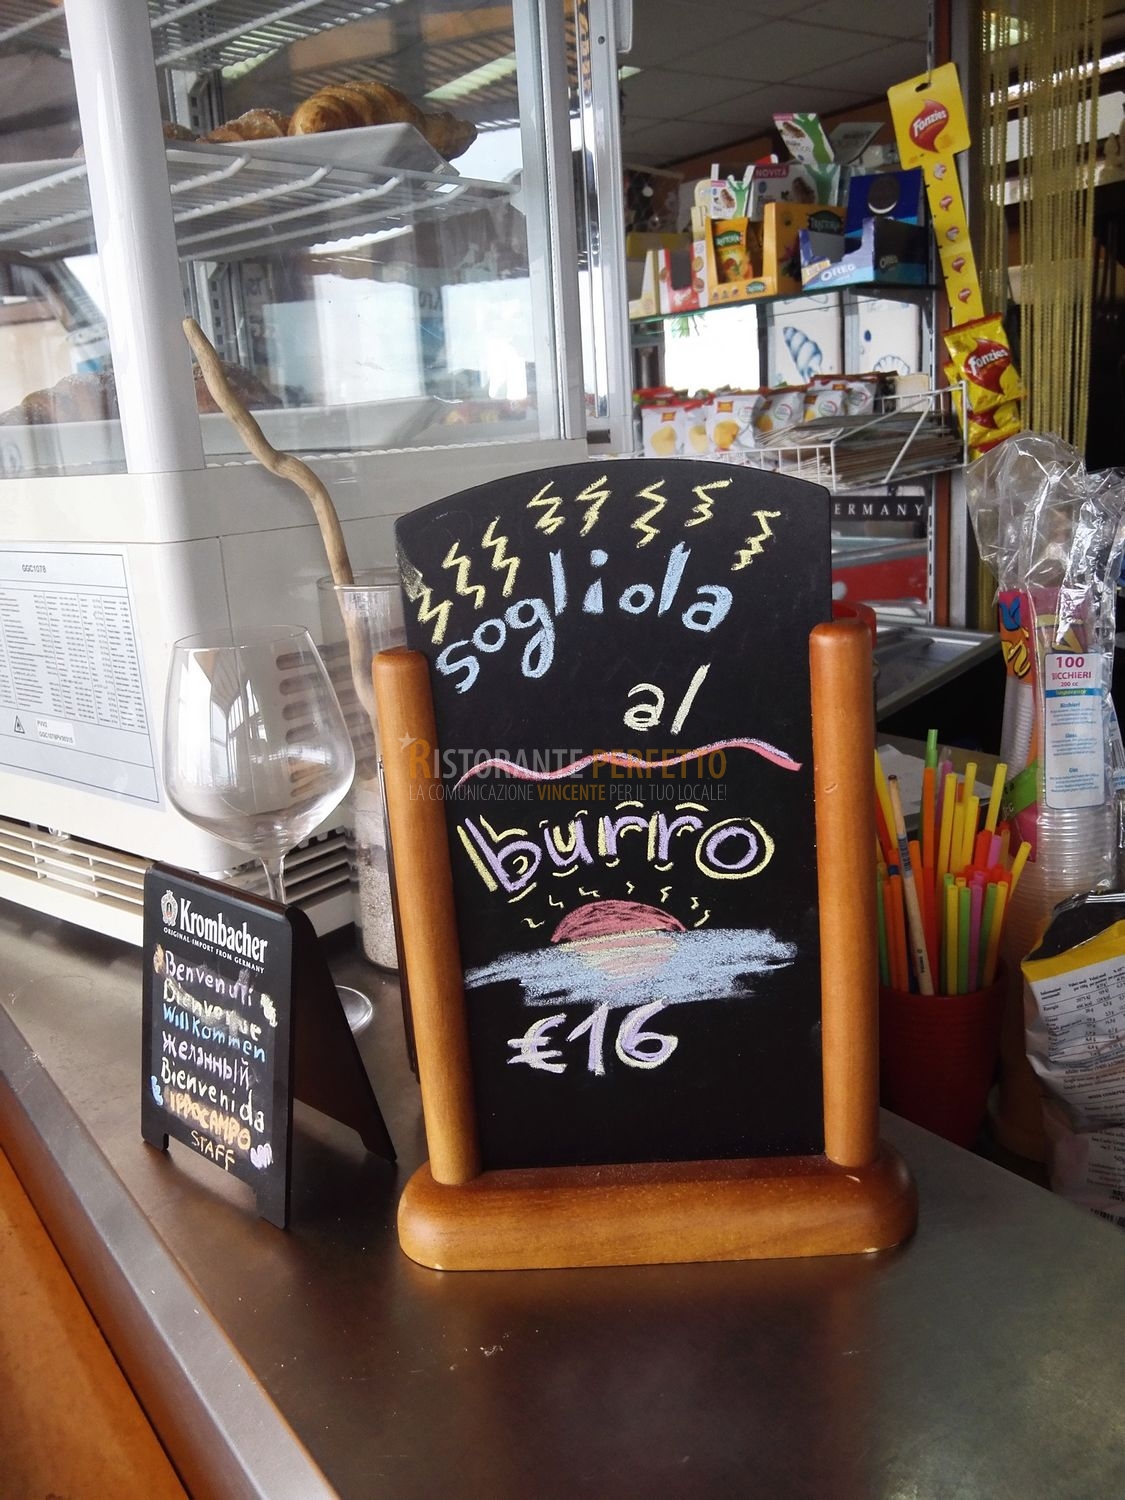 Fonzies
NOVITÀ
OREO
Fonzies
GERMANY
GGC1078
sogliola
al
RISTORANTE PERFETTO
LA COMUNICAZIONE VINCENTE PER IL TUO LOCALE!
burro
€16
Krombacher
ORIGINAL IMPORT FROM GERMANY
Benvenuti
Bienvenue
Willkommen
Желанный
Bienvenida
IPPOCAMPO
STAFF
100
BICCHIERI
200 cc